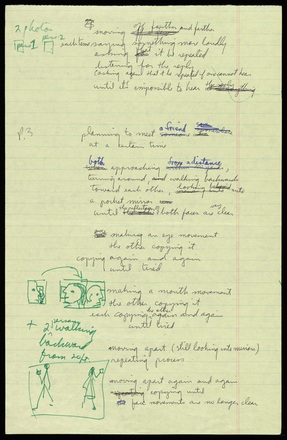 2 photos
pic 1
pic 2
moving farther and farther
each time saying something more loudly
asking it be repeated
listening for the reply
(asking again that it be repeated if one cannot hear
until it's impossible to hear
p. 3
planning to meet a friend
at a certain time
both approaching from a distance,
turning around, and walking backwards
toward each other, looking into
a pocket mirror
until both faces are clear
making an eye movement
the other copying it
copying again and again
until tired
making a mouth movement
the other copying it
each copying the other again and again
until tired
+
2 person
walking
backward
from
moving apart (still looking into mirrors)
repeating process
moving apart again and again
copying until
face movements are no longer clear